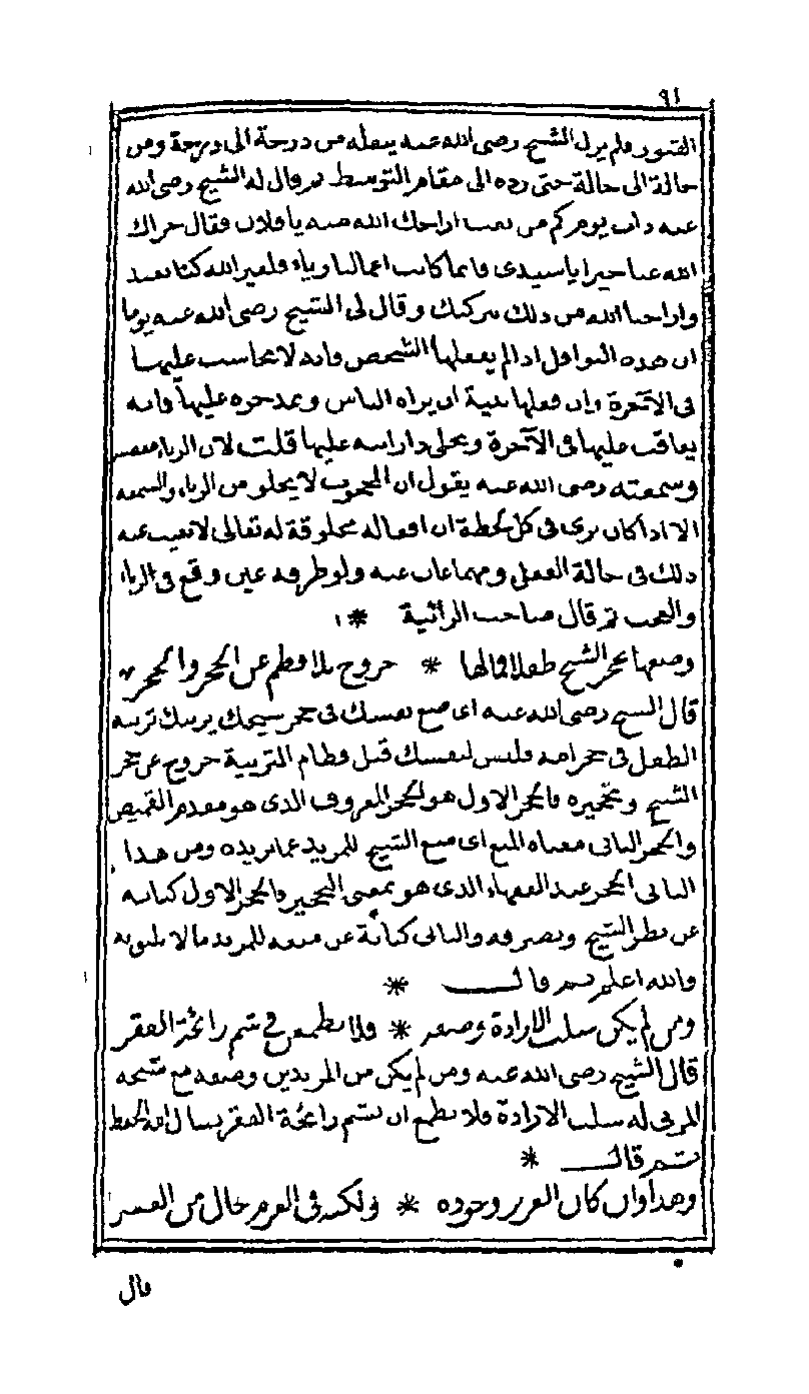 ٩١
الفتور ولم يزل الشيخ رضى الله عنه ينقله من درجة الى درجة ومن
حالة الى حالة حتى رده الى مقام التوسط ثم قال له الشيخ رضى الله
عنه ذات يوم كم من تعب اراحك الله منه يا فلان فقال جزاك
الله عنا خيرا يا سيدى فانما كانت اعمالنا رياء ولغير الله كنا نعبد
واراحنا الله من ذلك ببركتك وقال لى الشيخ رضى الله عنه يوما
ان هذه النوافل اذا لم يفعلها الشخص فانه لا يحاسب عليها
فى الآخرة وان فعلها بنية ان يراه الناس ويمدحوه عليها فانه
يعاقب عليها فى الآخرة ويخلى دار اسه عليها قلت لان الرياء معصية
وسمعته رضى الله عنه يقول ان المحجوب لا يخلو من الرياء والسمعة
الا اذا كان يرى فى كل لحظة ان افعاله مخلوقة له تعالى لا تغيب عنه
ذلك فى حالة الفعل ومهما غاب عنه ولو طرفة عين وقع فى الرياء
والعجب ثم قال صاحب الرائية * ١
وضعها بحجر الشيخ طفلا فما لها * خروج بلا فطم عن الحجر والحجر
قال الشيخ رضى الله عنه اى ضع نفسك فى حجر شيخك يربيك تربية
الطفل فى حجر امه وليس لنفسك قبل فطام التربية خروج عن حجر
الشيخ وتحجيره فالحجر الاول هو الحجر المعروف الذى هو مقدم القميص
والحجر الثانى معناه المنع اى منع الشيخ للمريد عما يريده ومن هذا
الثانى الحجر عند الفقهاء الذى هو بمعنى التحجير فالحجر الاول كناية
عن نظر الشيخ وتصرفه والثانى كناية عن منعه للمريد ما لا يليق به
والله اعلم ثم قال *
ومن لم يكن سلب الارادة وصفه * فلا يطمعن فى شم رائحة الفقر
قال الشيخ رضى الله عنه ومن لم يكن من المريدين وصفه مع شيخه
المربى له سلب الارادة فلا يطمع ان يشم رائحة الفقر نسال الله الحفظ
ثم قال *
وهذا وان كان العزيز وجوده * ولكنه فى العزم خال من العسر
قال